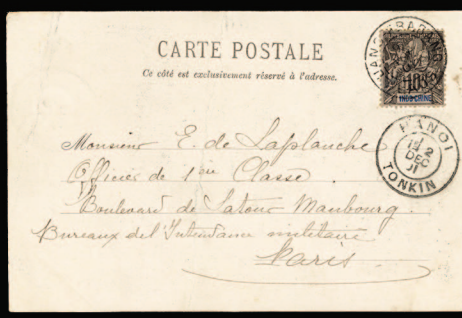 CARTE POSTALE
Ce côté est exclusivement réservé à l'adresse.
10
INDO-CHINE
HANOI
2
DEC
TONKIN
Monsieur E. de Laplanche
Officier de 1ère Classe
Boulevard de Latour Maubourg.
Bureaux de l'Intendance militaire
Paris